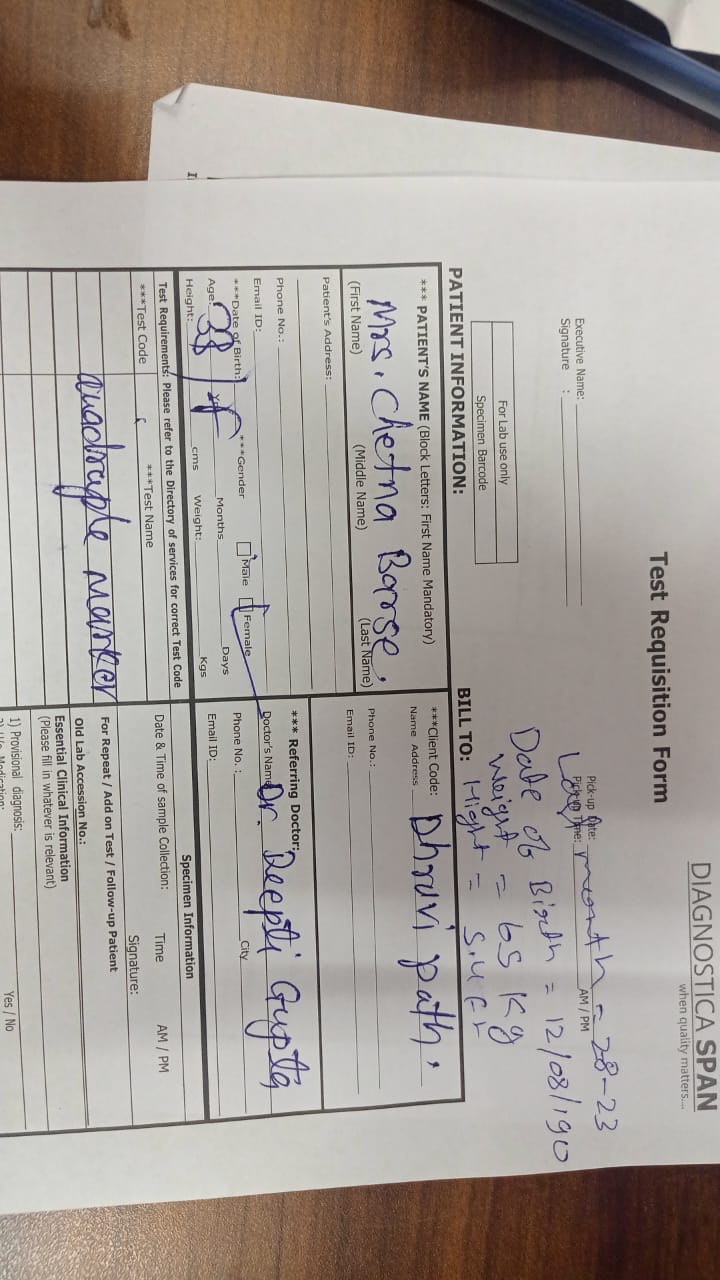 DIAGNOSTICA SPAN
when quality matters....
Test Requisition Form
Executive Name:
Signature :
Pick-up Date:
Pick-up Time: AM / PM
month = 28-23
Date of Birth = 12/08/190
Weight = 65 Kg
Hight = 5.4 Ft
For Lab use only
Specimen Barcode
PATIENT INFORMATION:
BILL TO:
*** PATIENT'S NAME (Block Letters: First Name Mandatory)
Mrs. Chetna Barse.
(First Name) (Middle Name) (Last Name)
Patient's Address:
Phone No.:
Email ID:
***Date of Birth: ***Gender Male Female
Age: 38 / F Months Days
Height: cms Weight: Kgs
***Client Code: Dhruvi path.
Name Address
Phone No.:
Email ID:
*** Referring Doctor:
Doctor's Name Dr. Deepti Gupta
Phone No. : City
Email ID:
Test Requirements: Please refer to the Directory of services for correct Test Code
***Test Code ***Test Name
Quadraple marker
Specimen Information
Date & Time of sample Collection: Time AM / PM
Signature:
For Repeat / Add on Test / Follow-up Patient
Old Lab Accession No.:
Essential Clinical Information
(Please fill in whatever is relevant)
1) Provisional diagnosis: Yes / No